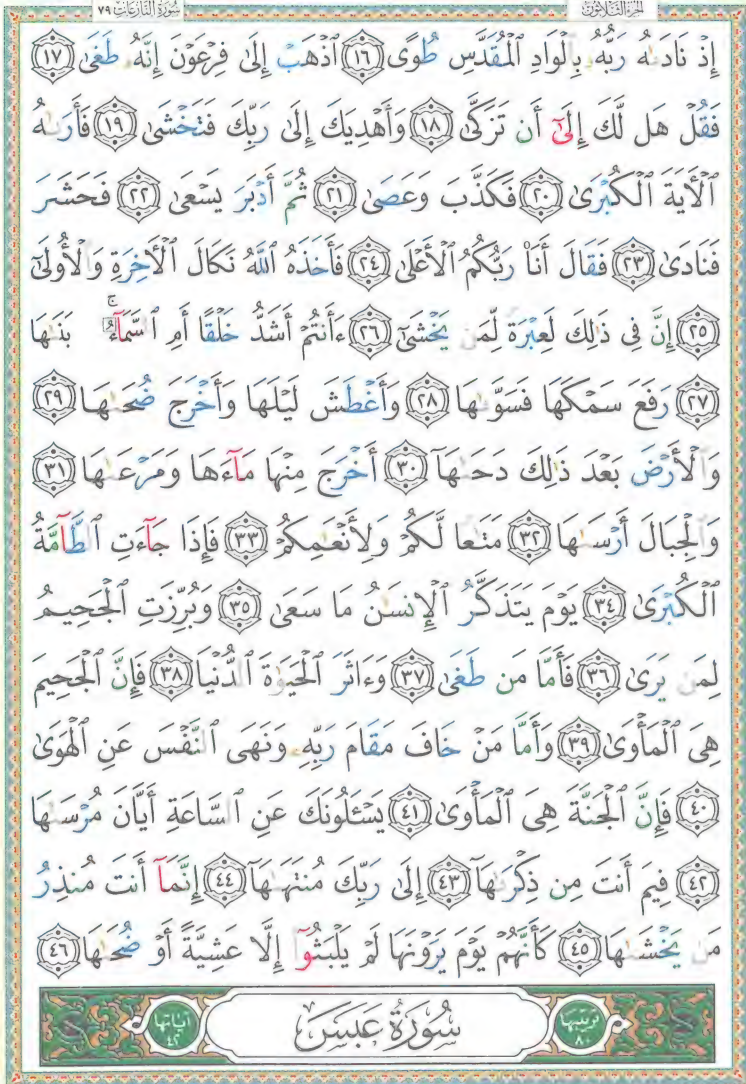 الجزء الثلاثون سورة النازعات ٧٩
إِذْ نَادَىٰهُ رَبُّهُۥ بِٱلْوَادِ ٱلْمُقَدَّسِ طُوًى ١٦ ٱذْهَبْ إِلَىٰ فِرْعَوْنَ إِنَّهُۥ طَغَىٰ ١٧
فَقُلْ هَل لَّكَ إِلَىٰٓ أَن تَزَكَّىٰ ١٨ وَأَهْدِيَكَ إِلَىٰ رَبِّكَ فَتَخْشَىٰ ١٩ فَأَرَىٰهُ
ٱلْأَيَةَ ٱلْكُبْرَىٰ ٢٠ فَكَذَّبَ وَعَصَىٰ ٢١ ثُمَّ أَدْبَرَ يَسْعَىٰ ٢٢ فَحَشَرَ
فَنَادَىٰ ٢٣ فَقَالَ أَنَا۠ رَبُّكُمُ ٱلْأَعْلَىٰ ٢٤ فَأَخَذَهُ ٱللَّهُ نَكَالَ ٱلْأَخِرَةِ وَٱلْأُولَىٰٓ
٢٥ إِنَّ فِى ذَٰلِكَ لَعِبْرَةً لِّمَن يَخْشَىٰٓ ٢٦ ءَأَنتُمْ أَشَدُّ خَلْقًا أَمِ ٱلسَّمَآءُ ۚ بَنَىٰهَا
٢٧ رَفَعَ سَمْكَهَا فَسَوَّىٰهَا ٢٨ وَأَغْطَشَ لَيْلَهَا وَأَخْرَجَ ضُحَىٰهَا ٢٩
وَٱلْأَرْضَ بَعْدَ ذَٰلِكَ دَحَىٰهَآ ٣٠ أَخْرَجَ مِنْهَا مَآءَهَا وَمَرْعَىٰهَا ٣١
وَٱلْجِبَالَ أَرْسَىٰهَا ٣٢ مَتَٰعًا لَّكُمْ وَلِأَنْعَٰمِكُمْ ٣٣ فَإِذَا جَآءَتِ ٱلطَّآمَّةُ
ٱلْكُبْرَىٰ ٣٤ يَوْمَ يَتَذَكَّرُ ٱلْإِنسَٰنُ مَا سَعَىٰ ٣٥ وَبُرِّزَتِ ٱلْجَحِيمُ
لِمَن يَرَىٰ ٣٦ فَأَمَّا مَن طَغَىٰ ٣٧ وَءَاثَرَ ٱلْحَيَوٰةَ ٱلدُّنْيَا ٣٨ فَإِنَّ ٱلْجَحِيمَ
هِىَ ٱلْمَأْوَىٰ ٣٩ وَأَمَّا مَنْ خَافَ مَقَامَ رَبِّهِۦ وَنَهَى ٱلنَّفْسَ عَنِ ٱلْهَوَىٰ
٤٠ فَإِنَّ ٱلْجَنَّةَ هِىَ ٱلْمَأْوَىٰ ٤١ يَسْـَٔلُونَكَ عَنِ ٱلسَّاعَةِ أَيَّانَ مُرْسَىٰهَا
٤٢ فِيمَ أَنتَ مِن ذِكْرَىٰهَآ ٤٣ إِلَىٰ رَبِّكَ مُنتَهَىٰهَآ ٤٤ إِنَّمَآ أَنتَ مُنذِرُ
مَن يَخْشَىٰهَا ٤٥ كَأَنَّهُمْ يَوْمَ يَرَوْنَهَا لَمْ يَلْبَثُوٓا۟ إِلَّا عَشِيَّةً أَوْ ضُحَىٰهَا ٤٦
ترتيبها ٨٠ سُورَةُ عَبَسَ آياتها ٤٢